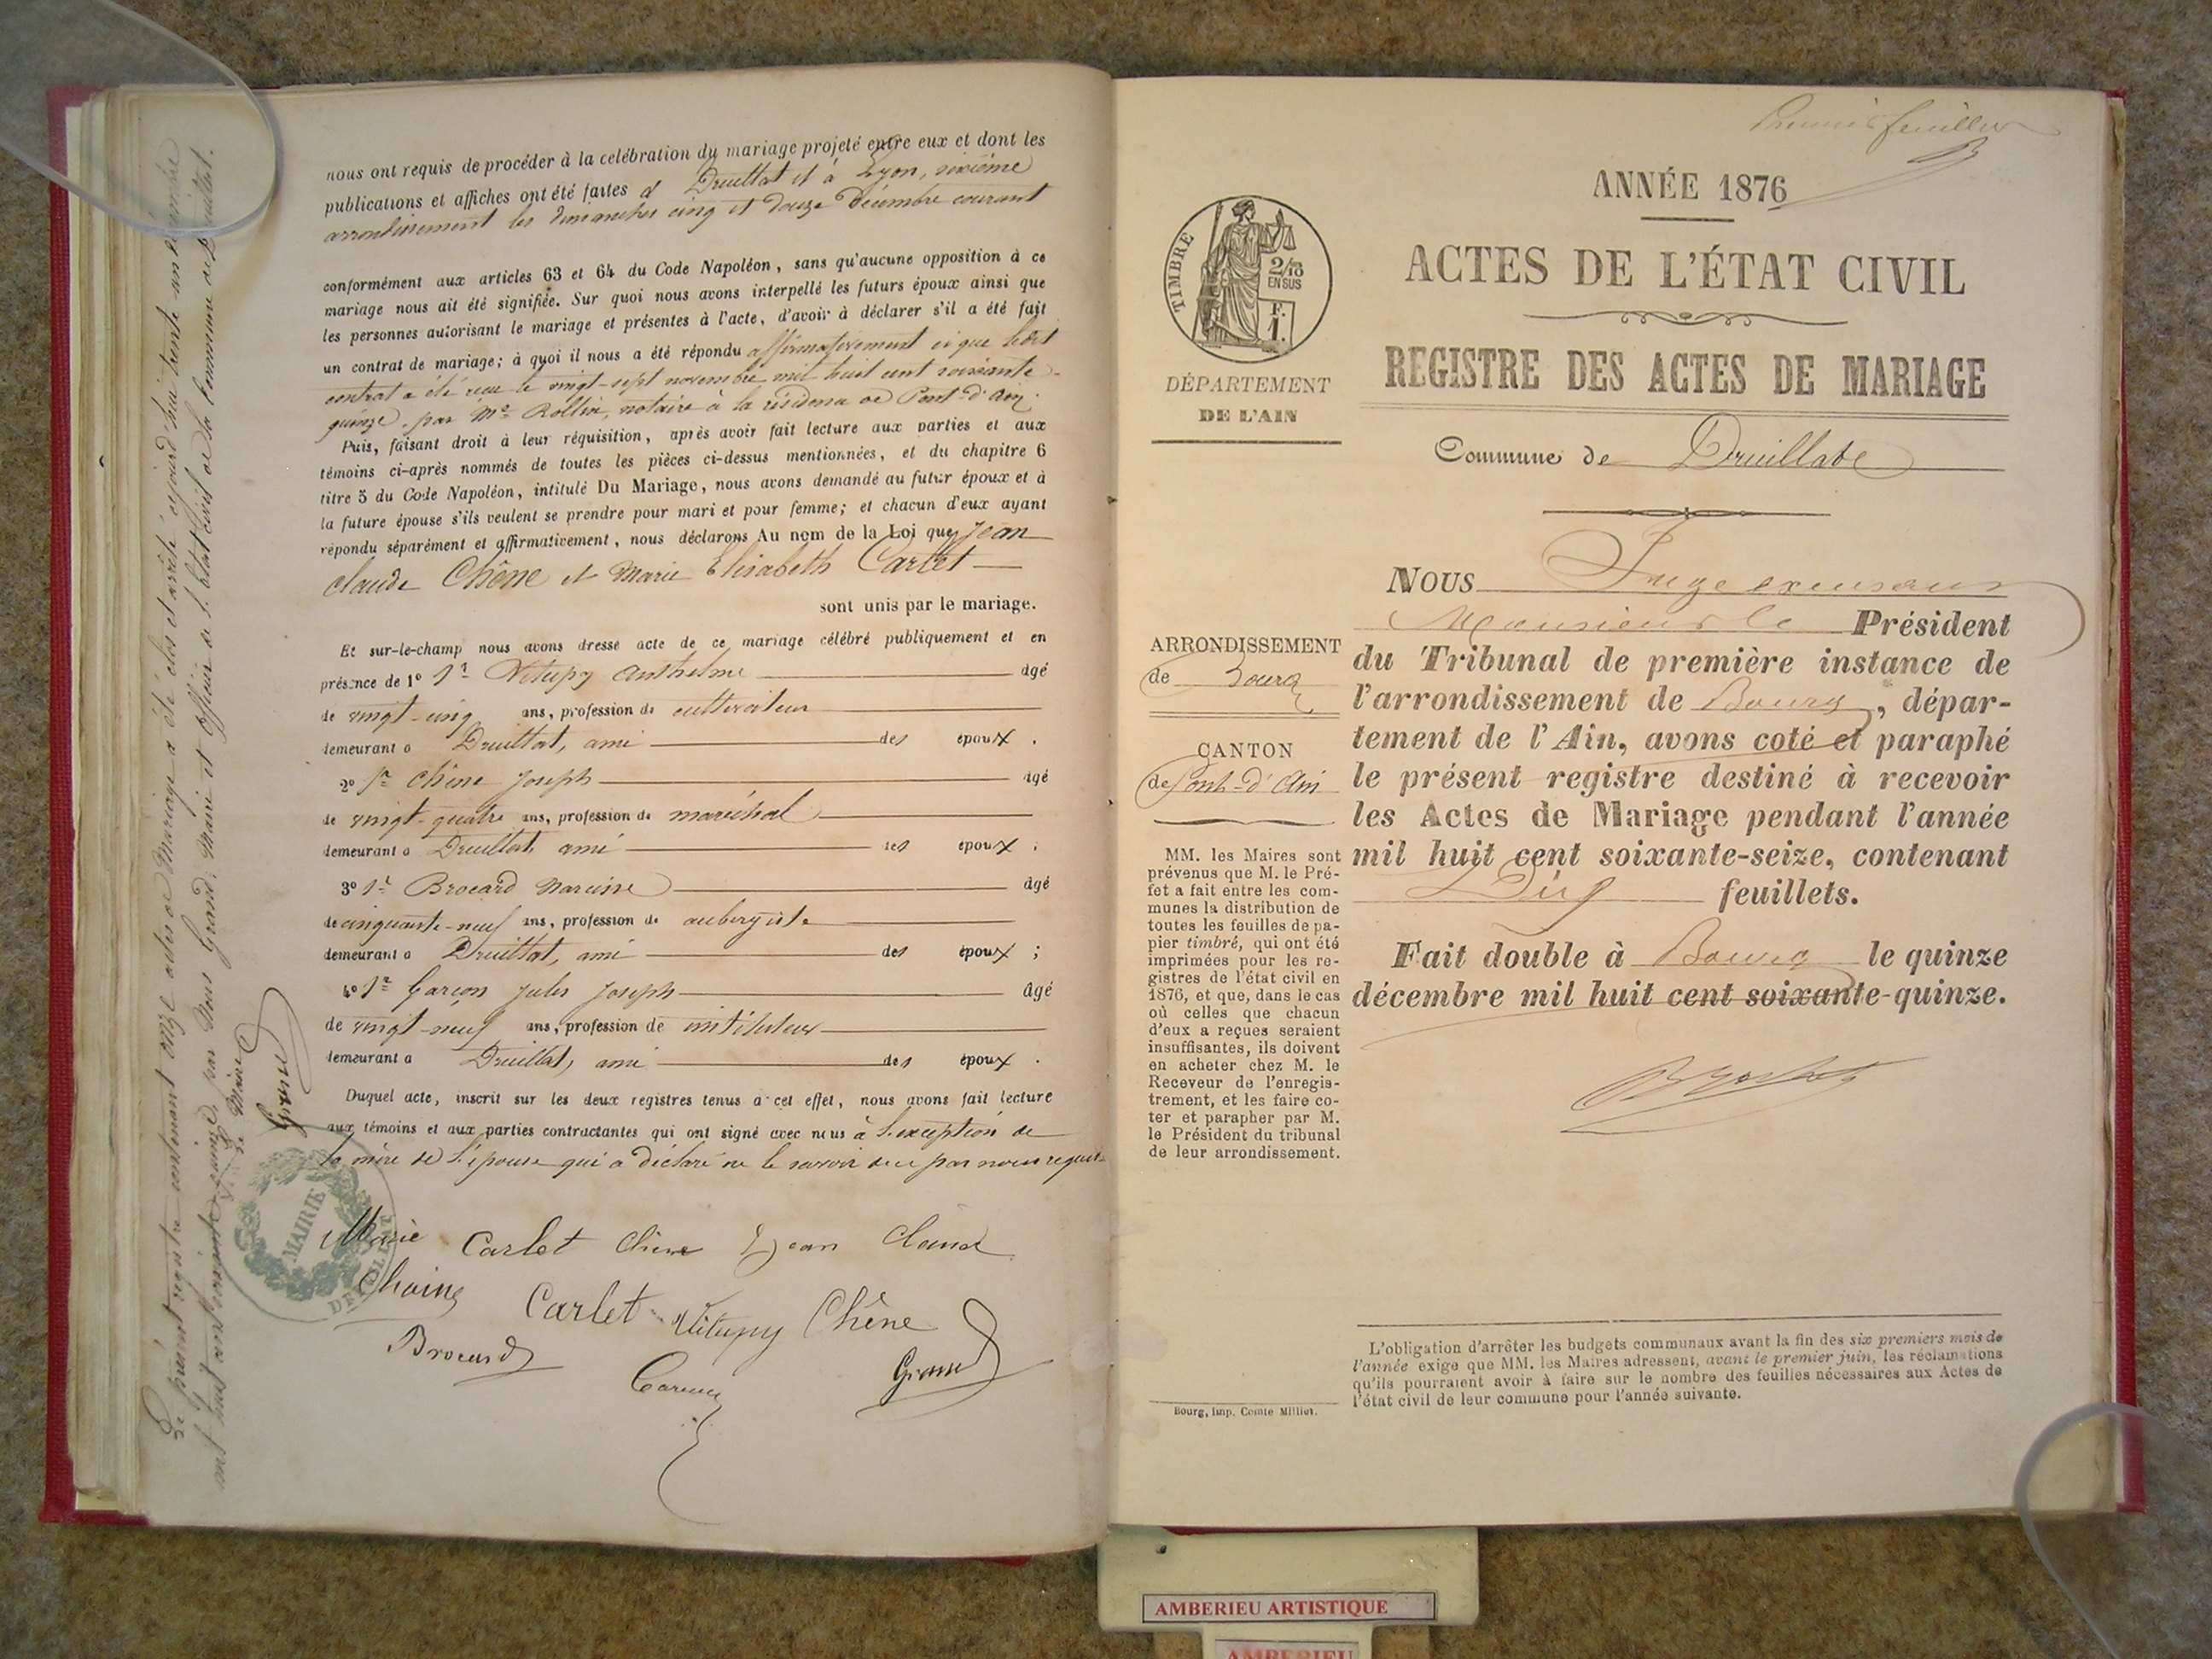 nous ont requis de procéder à la celébration du mariage projeté entre eux et dont les
publications et affiches ont été faites à Druillat et à Lyon, sixième
arrondissement les dimanches cinq et douze Décembre courant
conformément aux articles 63 et 64 du Code Napoléon, sans qu'aucune opposition à ce
mariage nous ait été signifiée. Sur quoi nous avons interpellé les futurs époux ainsi que
les personnes autorisant le mariage et présentes à l'acte, d'avoir à déclarer s'il a été fait
un contrat de mariage; à quoi il nous a été répondu affirmativement et que ledit
contrat a été reçu le vingt-sept novembre mil huit cent soixante-
quinze, par Me Rollin, notaire à la résidence de Pont-d'Ain.
Puis, faisant droit à leur réquisition, après avoir fait lecture aux parties et aux
témoins ci-après nommés de toutes les pièces ci-dessus mentionnées, et du chapitre 6
titre 5 du Code Napoléon, intitulé Du Mariage, nous avons demandé au futur époux et à
la future épouse s'ils veulent se prendre pour mari et pour femme; et chacun d'eux ayant
répondu séparément et affirmativement, nous déclarons Au nom de la Loi que Jean
Claude Chêne et Marie Elisabeth Carlet
sont unis par le mariage.
Et sur-le-champ nous avons dressé acte de ce mariage célébré publiquement et en
présence de 1° Sr Vitupy Anthelme âgé
de vingt-cinq ans, profession de cultivateur
demeurant à Druillat, ami des époux.
2° Sr Chêne Joseph âgé
de vingt-quatre ans, profession de maréchal
demeurant à Druillat, ami des époux;
3° Sr Brocard Narcisse âgé
de cinquante-neuf ans, profession de aubergiste
demeurant à Druillat, ami des époux;
4° Sr Garçon Jules Joseph âgé
de vingt-neuf ans, profession de instituteur
demeurant à Druillat, ami des époux.
Duquel acte, inscrit sur les deux registres tenus à cet effet, nous avons fait lecture
aux témoins et aux parties contractantes qui ont signé avec nous à l'exception de
la mère de l'épouse qui a déclaré ne le savoir de ce par nous requise
Marie Carlet Chêne Jean Claude
Carlet Vitupy Chêne
Brocard Grand
Le présent registre contenant onze actes de Mariage a été clos et arrêté cejourd'hui trente-un décembre
mil huit cent soixante-quinze, par Nous Grand, Maire et officier de l'état civil de la commune de Druillat.
Le Maire
Grand
MAIRIE
Premier feuillet
ANNÉE 1876
ACTES DE L'ÉTAT CIVIL
REGISTRE DES ACTES DE MARIAGE
TIMBRE
2/10
EN SUS
F.
1.
DÉPARTEMENT
DE L'AIN
Commune de Druillat
ARRONDISSEMENT
de Bourg
CANTON
de Pont-d'Ain
MM. les Maires sont
prévenus que M. le Pré-
fet a fait entre les com-
munes la distribution de
toutes les feuilles de pa-
pier timbré, qui ont été
imprimées pour les re-
gistres de l'état civil en
1876, et que, dans le cas
où celles que chacun
d'eux a reçues seraient
insuffisantes, ils doivent
en acheter chez M. le
Receveur de l'enregis-
trement, et les faire co-
ter et parapher par M.
le Président du tribunal
de leur arrondissement.
Nous Juge
Monsieur le Président
du Tribunal de première instance de
l'arrondissement de Bourg, dépar-
tement de l'Ain, avons coté et paraphé
le présent registre destiné à recevoir
les Actes de Mariage pendant l'année
mil huit cent soixante-seize, contenant
Dix feuillets.
Fait double à Bourg le quinze
décembre mil huit cent soixante-quinze.
L'obligation d'arrêter les budgets communaux avant la fin des six premiers mois de
l'année exige que MM. les Maires adressent, avant le premier juin, les réclamations
qu'ils pourraient avoir à faire sur le nombre des feuilles nécessaires aux Actes de
l'état civil de leur commune pour l'année suivante.
Bourg, Imp. Comte Milliet.
AMBERIEU ARTISTIQUE
AMBERIEU